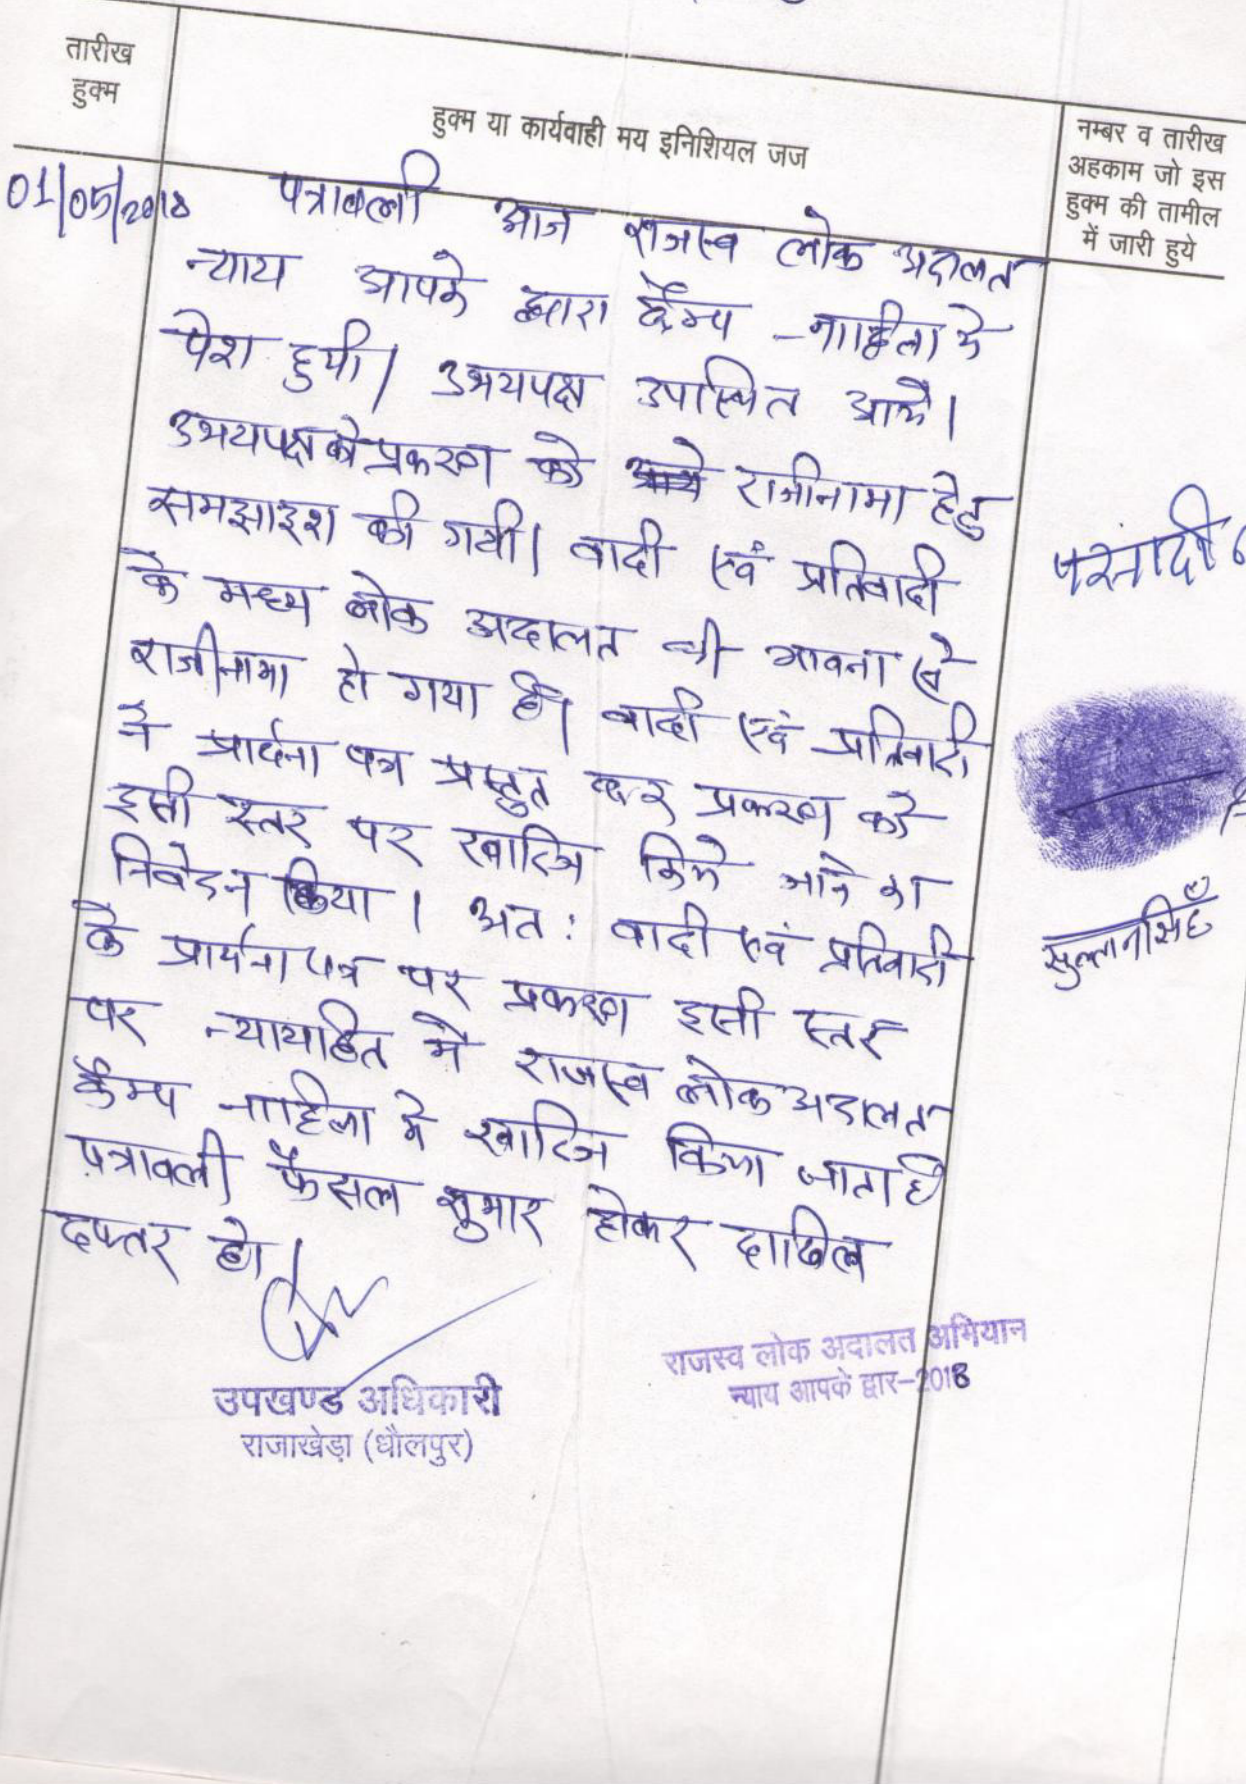 तारीख
हुक्म
हुक्म या कार्यवाही मय इनिशियल जज
नम्बर व तारीख
अहकाम जो इस
हुक्म की तामील
में जारी हुये
01/05/2018
पत्रावली आज राजस्व लोक अदालत
न्याय आपके द्वारा कैम्प नाहिला मे
पेश हुयी। उभयपक्ष उपस्थित आये।
उभयपक्ष को प्रकरण को राजीनामा हेतु
समझाइश की गयी। वादी एवं प्रतिवादी
के मध्य लोक अदालत की भावना से
राजीनामा हो गया है। वादी एवं प्रतिवादी
ने प्रार्थना पत्र प्रस्तुत कर प्रकरण को
इसी स्तर पर खारिज किये जाने का
निवेदन किया। अत: वादी एवं प्रतिवादी
के प्रार्थना पत्र पर प्रकरण इसी स्तर
पर न्यायहित मे राजस्व लोक अदालत
कैम्प नाहिला मे खारिज किया जाता है
पत्रावली फैसल शुमार होकर दाखिल
दफ्तर हो।
परसादी
सुल्तानसिहँ
उपखण्ड अधिकारी
राजाखेड़ा (धौलपुर)
राजस्व लोक अदालत अभियान
न्याय आपके द्वार-2018